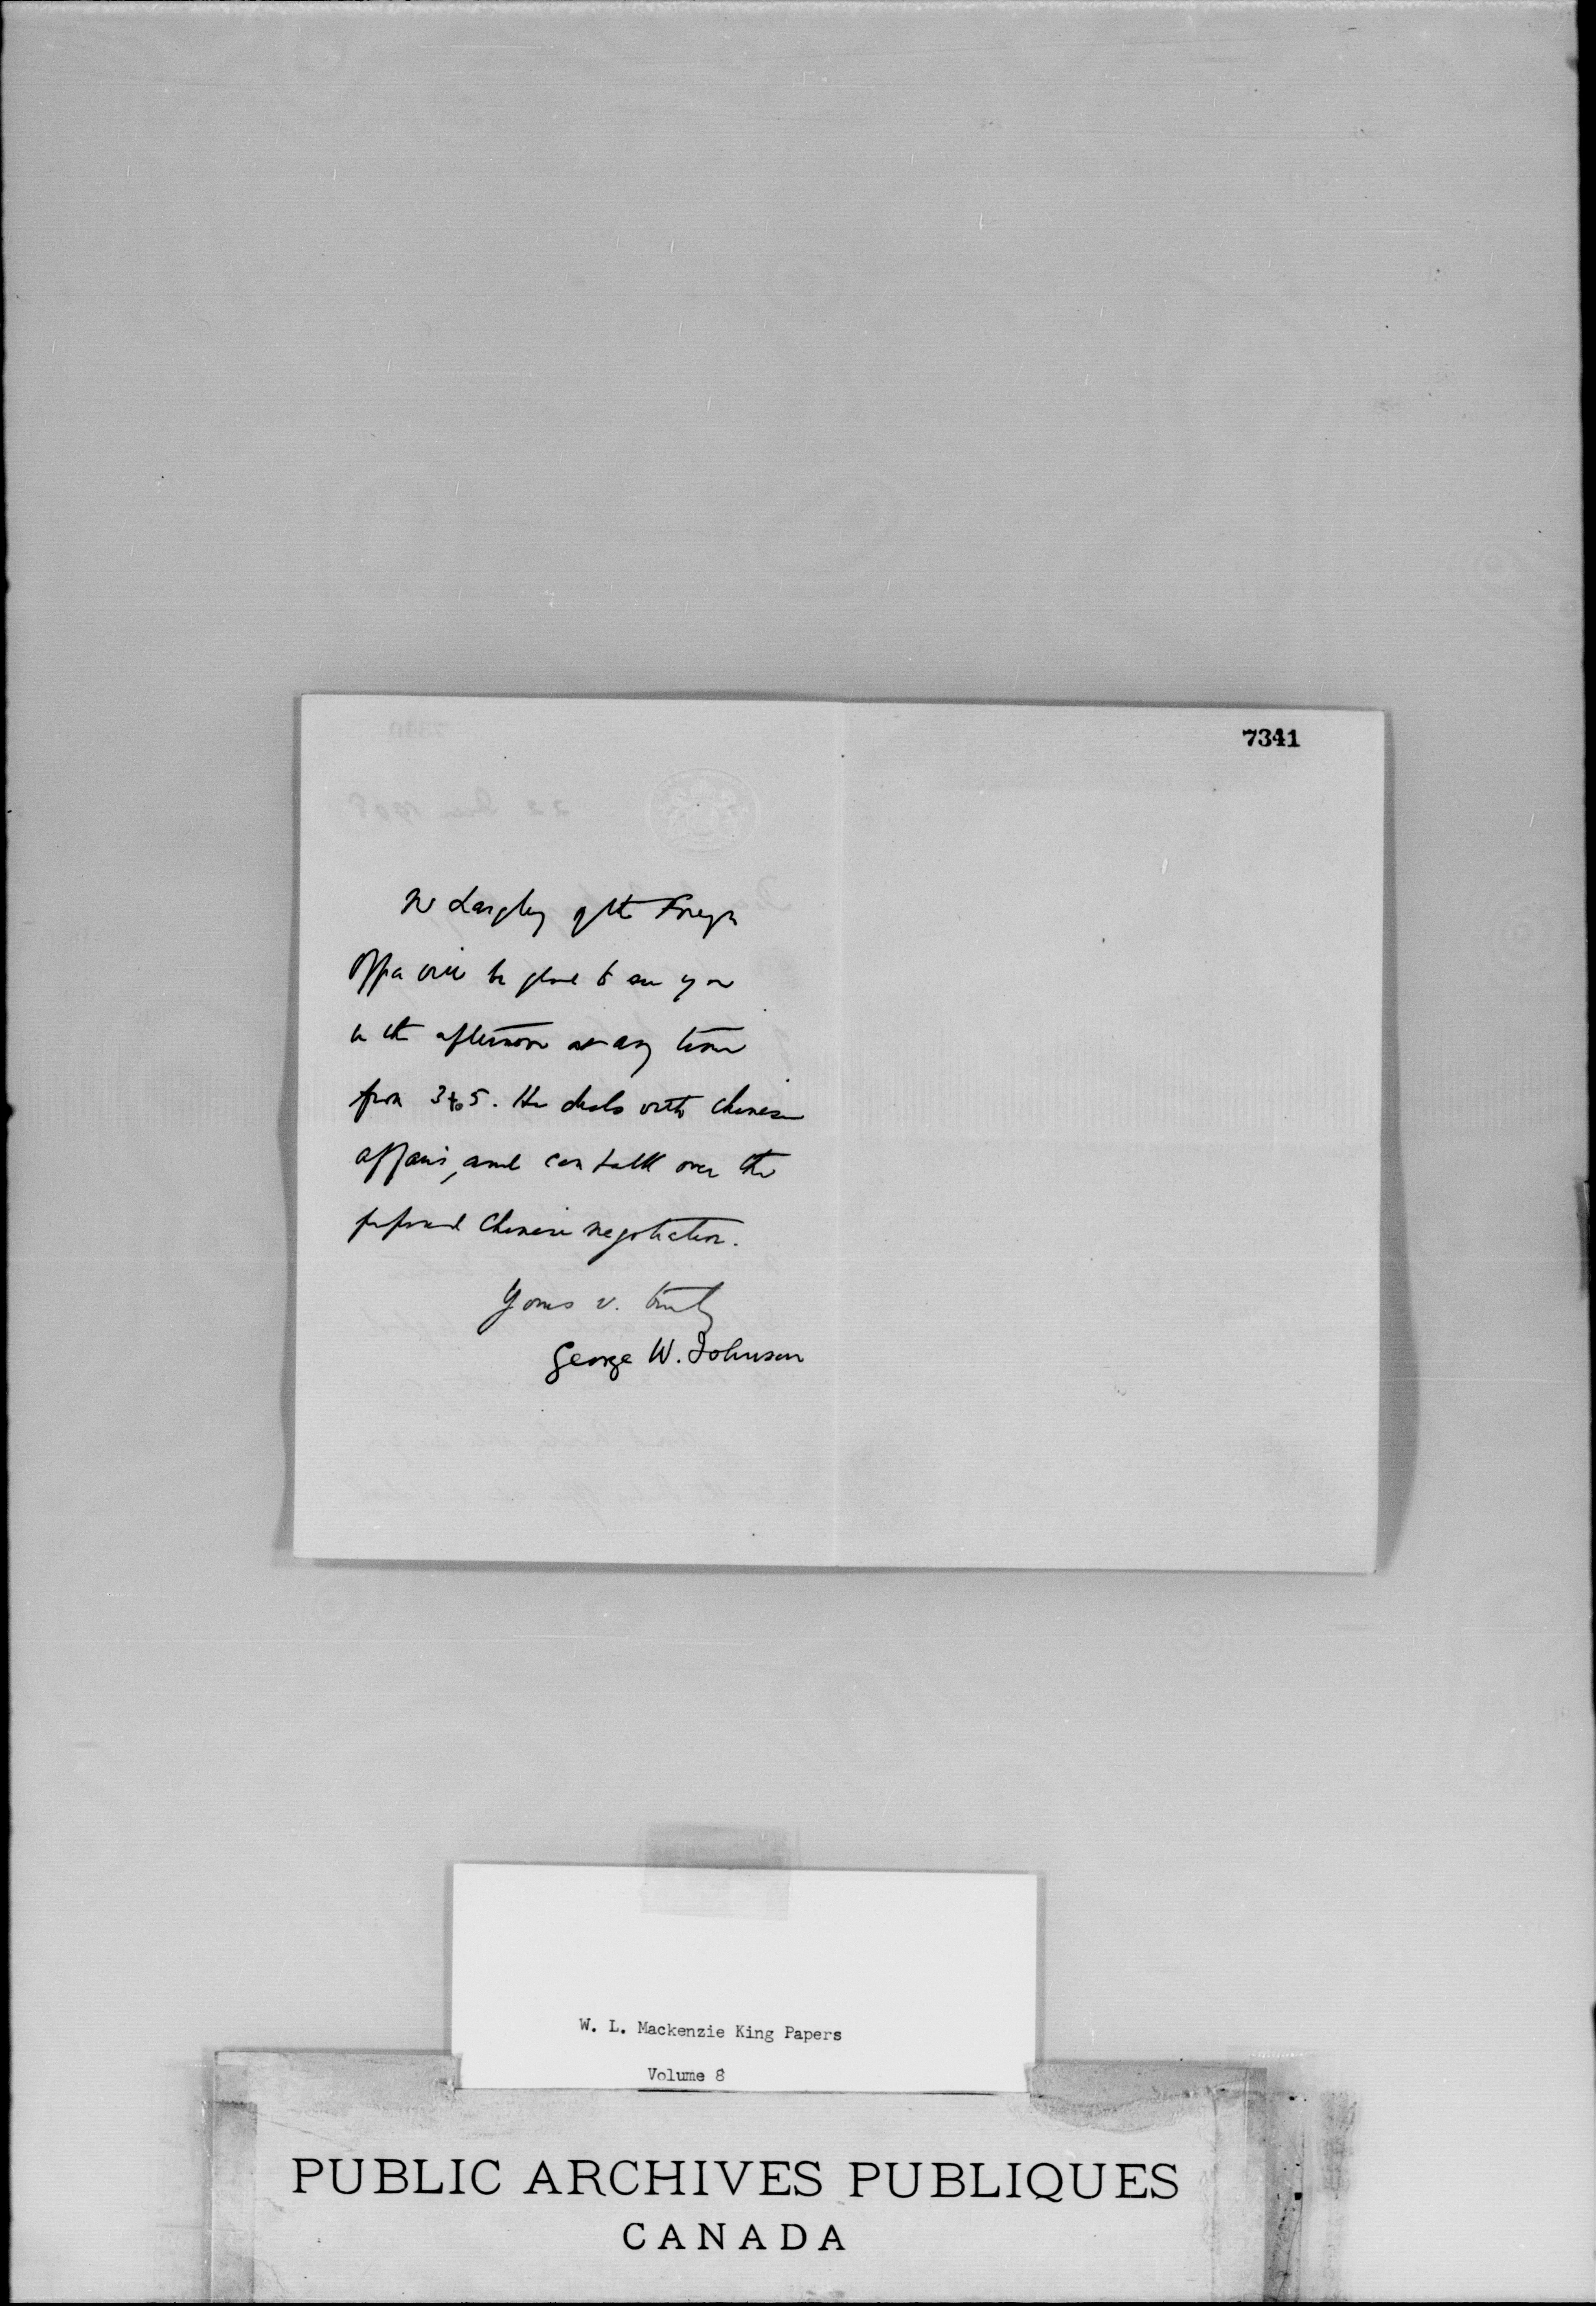 7341
Mr Langley of the Foreign
Office will be glad to see you
in the afternoon at any time
from 3 to 5. He deals with Chinese
affairs, and can talk over the
proposed Chinese negotiation.
Yours v. truly
George W. Johnson
W. L. Mackenzie King Papers
Volume 8
PUBLIC ARCHIVES PUBLIQUES
CANADA